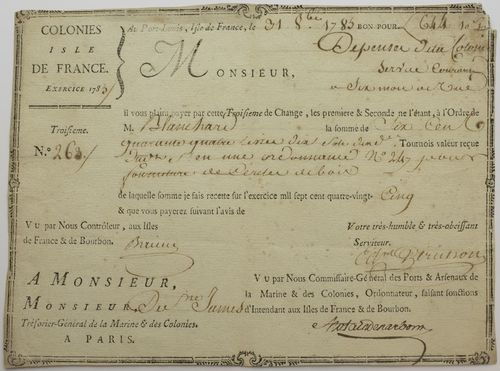 COLONIES
ISLE
DE FRANCE.
EXERCICE 1785
Au Port-Louis, Isle de France, le 31 8bre 1785 BON POUR 644 10
Dépenses d'au Colonie
Service Courant
a Six mois de Vue
MONSIEUR,
Il vous plaira payer par cette Troisieme de Change, les premiere & Seconde ne l'étant, à l'Ordre de
Troisieme.
M. Blanchard la somme de Six Cent
N.º 263
quarante quatre livres dix Sols Tournois valeur reçue
en une ordonnance Nº 247 pour
fourniture de de bois
de laquelle somme je fais recette sur l'exercice mil sept cent quatre-vingt- Cinq
& que vous payerez suivant l'avis de
VU par Nous Contrôleur, aux Isles
de France & de Bourbon.
Votre très-humble & très-obéissant
Serviteur.
A MONSIEUR,
MONSIEUR De Ste James
Trésorier-Général de la Marine & des Colonies.
A PARIS.
VU par Nous Commissaire-Général des Ports & Arsenaux de
la Marine & des Colonies, Ordonnateur, faisant fonctions
d'Intendant aux Isles de France & de Bourbon.